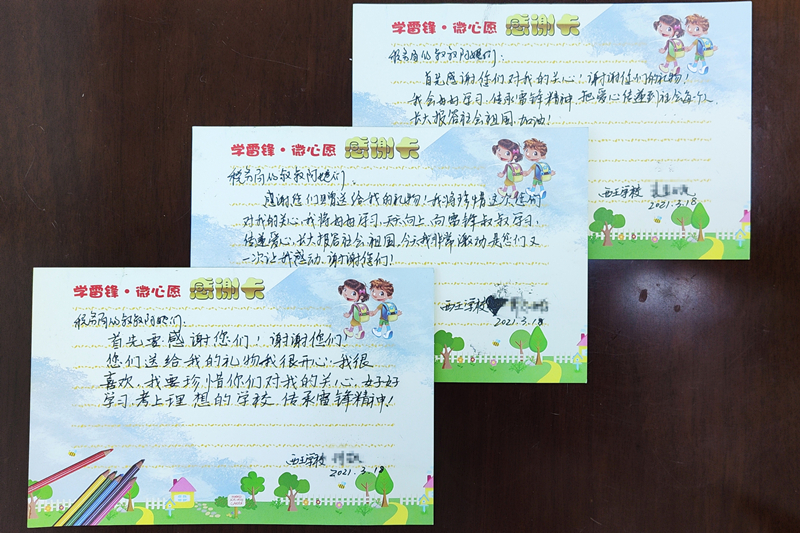 学雷锋·微心愿 感谢卡
税务局的叔叔阿姨们:
首先感谢您们对我的关心!谢谢您们的礼物!
我会好好学习,传承雷锋精神,把爱心传递到社会每个人,
长大报答社会祖国,加油!
西王学校
2021.3.18
学雷锋·微心愿 感谢卡
税务局的叔叔阿姨们:
感谢您们赠送给我的礼物!我将珍惜这次您们
对我的关心,我将好好学习,天天向上,向雷锋叔叔学习,
传递爱心,长大报答社会,祖国,今天我非常激动,是您们又
一次让我感动,谢谢您们!
西王学校
2021.3.18
学雷锋·微心愿 感谢卡
税务局的叔叔阿姨们:
首先要感谢您们!谢谢您们!
您们送给我的礼物我很开心,我很
喜欢,我要珍惜你们对我的关心,好好
学习,考上理想的学校,传承雷锋精神!
西王学校
2021.3.18